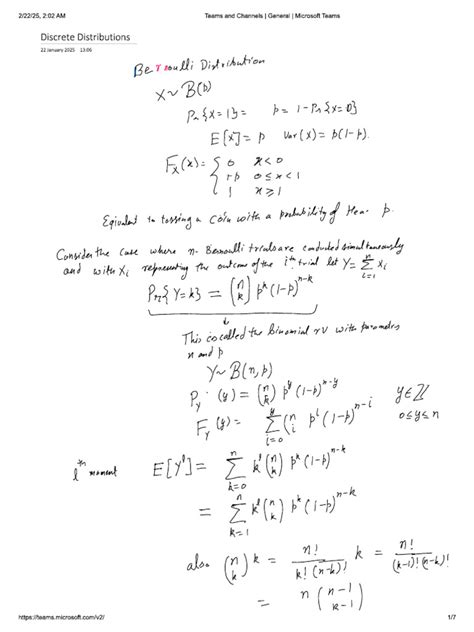 2/22/25, 2:02 AM Teams and Channels | General | Microsoft Teams
Discrete Distributions
22 January 2025 13:06
Bernoulli Distribution
X ~ B(p)
Pr{X=1} = p = 1-Pr{X=0}
E[X] = p Var(X) = p(1-p).
F_X(x) = { 0 x<0
1-p 0≤x<1
1 x≥1
Equivalent to tossing a coin with a probability of Hea p.
Consider the case where n- Bernoulli trials are conducted simultaneously
and with X_i representing the outcome of the i^th trial let Y = ∑_{i=1}^{n} X_i
Pr{Y=k} = (n k) p^k (1-p)^{n-k}
This is called the Binomial rv with parameters
n and p
Y ~ B(n, p)
P_Y (y) = (n y) p^y (1-p)^{n-y} y ∈ ℤ
F_Y (y) = ∑_{i=0}^{y} (n i p^i (1-p)^{n-i} 0≤y≤n
l^th moment E[Y^l] = ∑_{k=0}^{n} k^l (n k) p^k (1-p)^{n-k}
= ∑_{k=1}^{n} k^l (n k) p^k (1-p)^{n-k}
also (n k) k = n! / k!(n-k)! k = n! / (k-1)!(n-k)!
= n (n-1 k-1)
https://teams.microsoft.com/v2/ 1/7